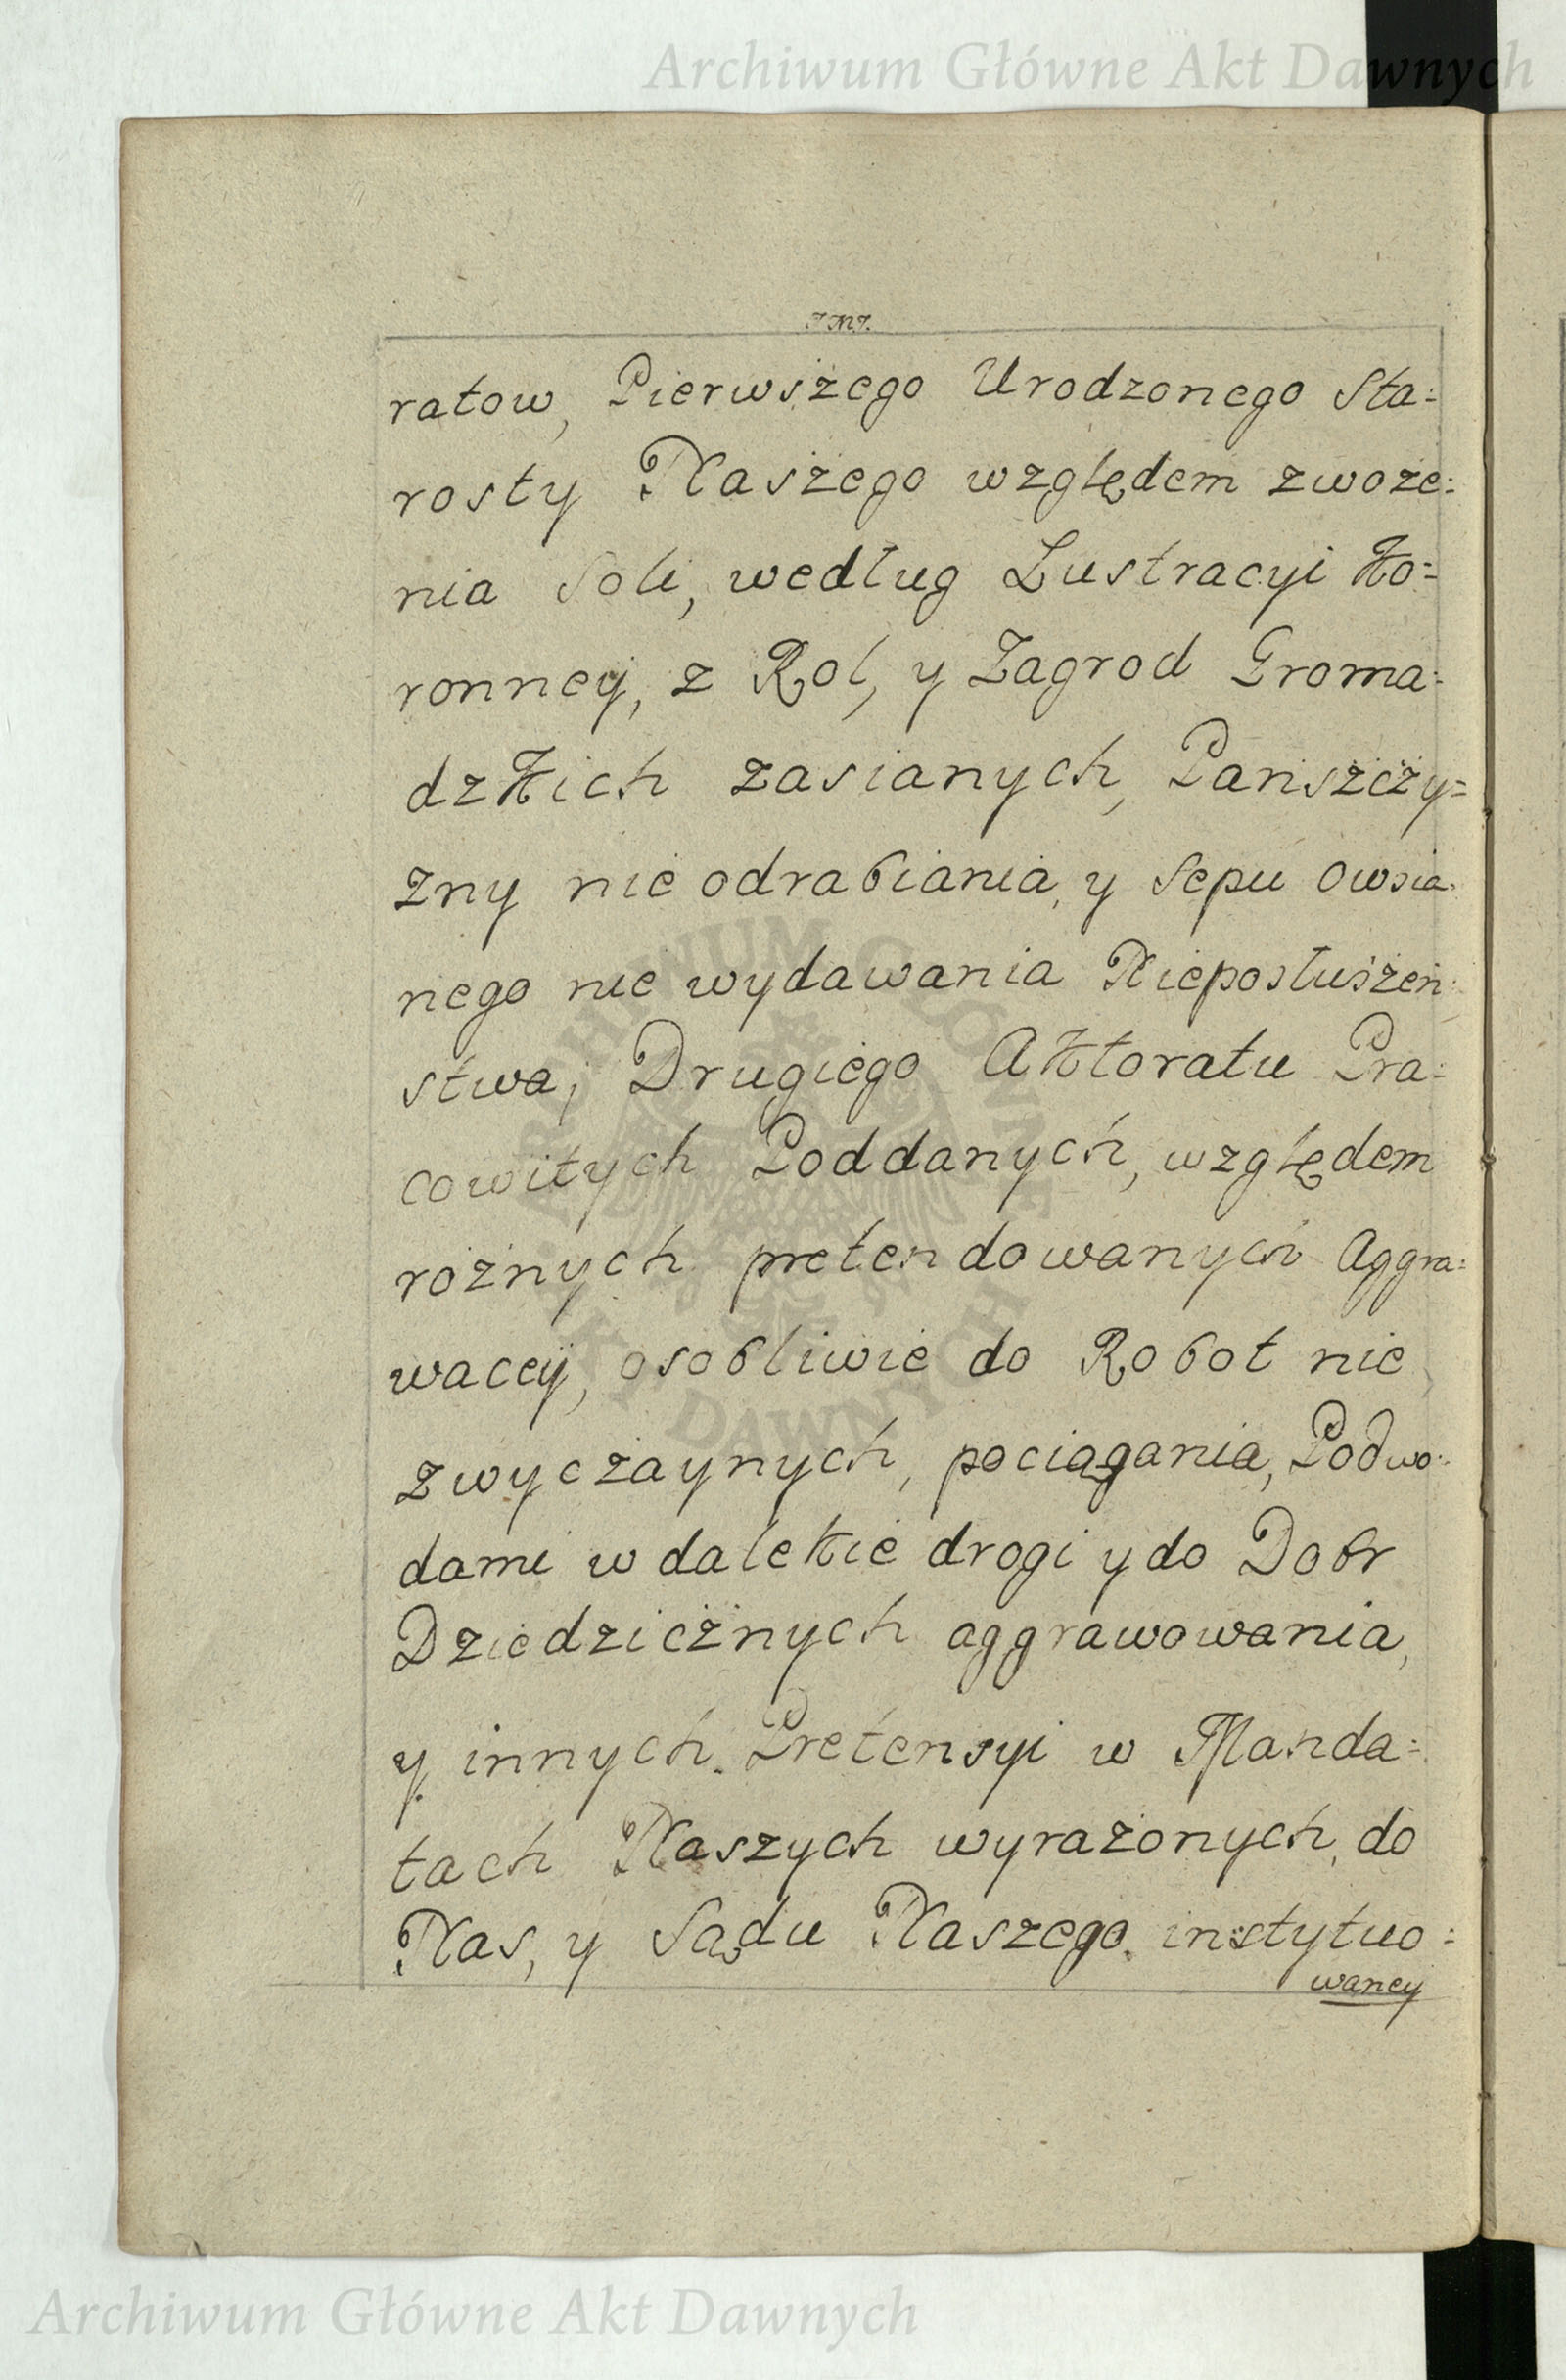 Archiwum Główne Akt Dawnych
ratow, Pierwszego Urodzonego Sta=
rosty Naszego względem zwoze=
nia Soli, według Lustracyi Ko=
ronney, z Rol, y Zagrod Groma=
dzkich zasianych, Panszczy=
zny nie odrabiania, y Sepu Owsia=
nego nie wydawania Nieposłuszen=
stwa; Drugiego Aktoratu Pra=
cowitych Poddanych, względem
rożnych pretendowanych Aggra=
wacey, osobliwie do Robot nie
zwyczaynych, pociągania, Podwo=
dami w dalekie drogi y do Dobr
Dziedzicznych aggrawowania,
y innych Pretensyi w Manda=
tach Naszych wyrażonych, do
Nas, y Sądu Naszego instytuo=
waney
ARCHIWUM GŁÓWNE AKT DAWNYCH
Archiwum Główne Akt Dawnych